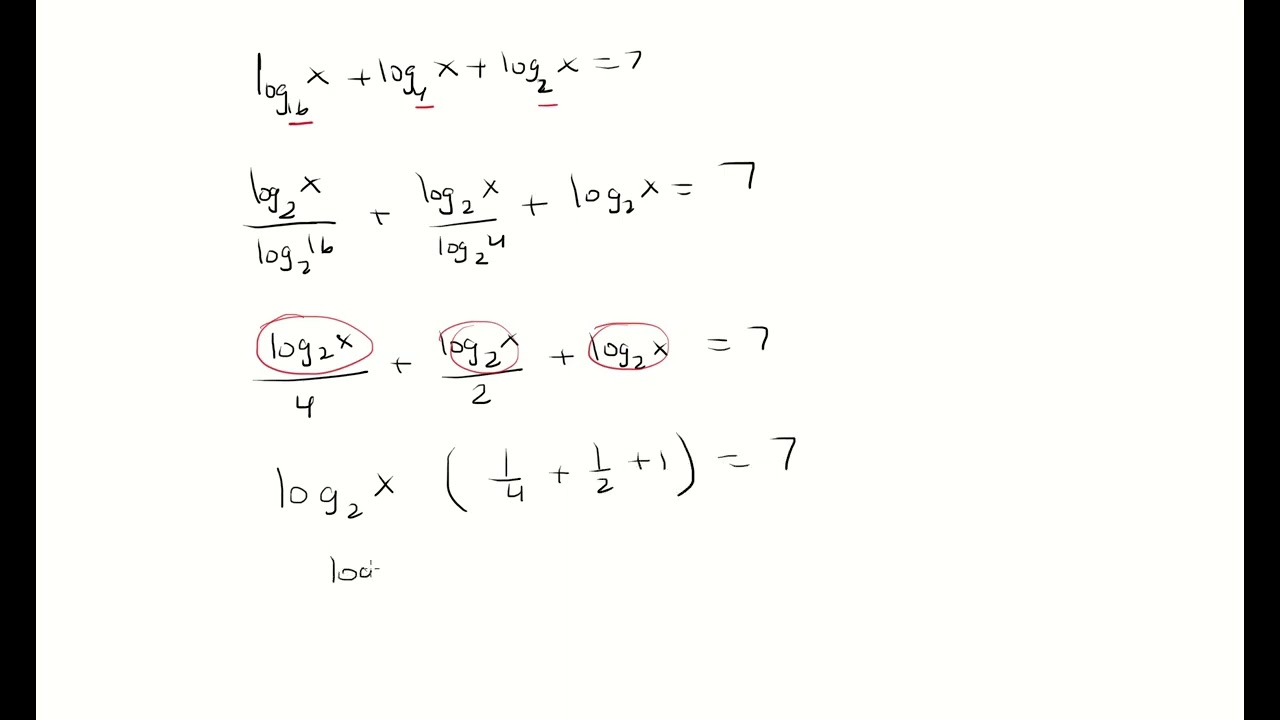 log₁₆ x + log₄ x + log₂ x = 7
log₂ x / log₂ 16 + log₂ x / log₂ 4 + log₂ x = 7
log₂ x / 4 + log₂ x / 2 + log₂ x = 7
log₂ x ( 1/4 + 1/2 + 1 ) = 7
lo